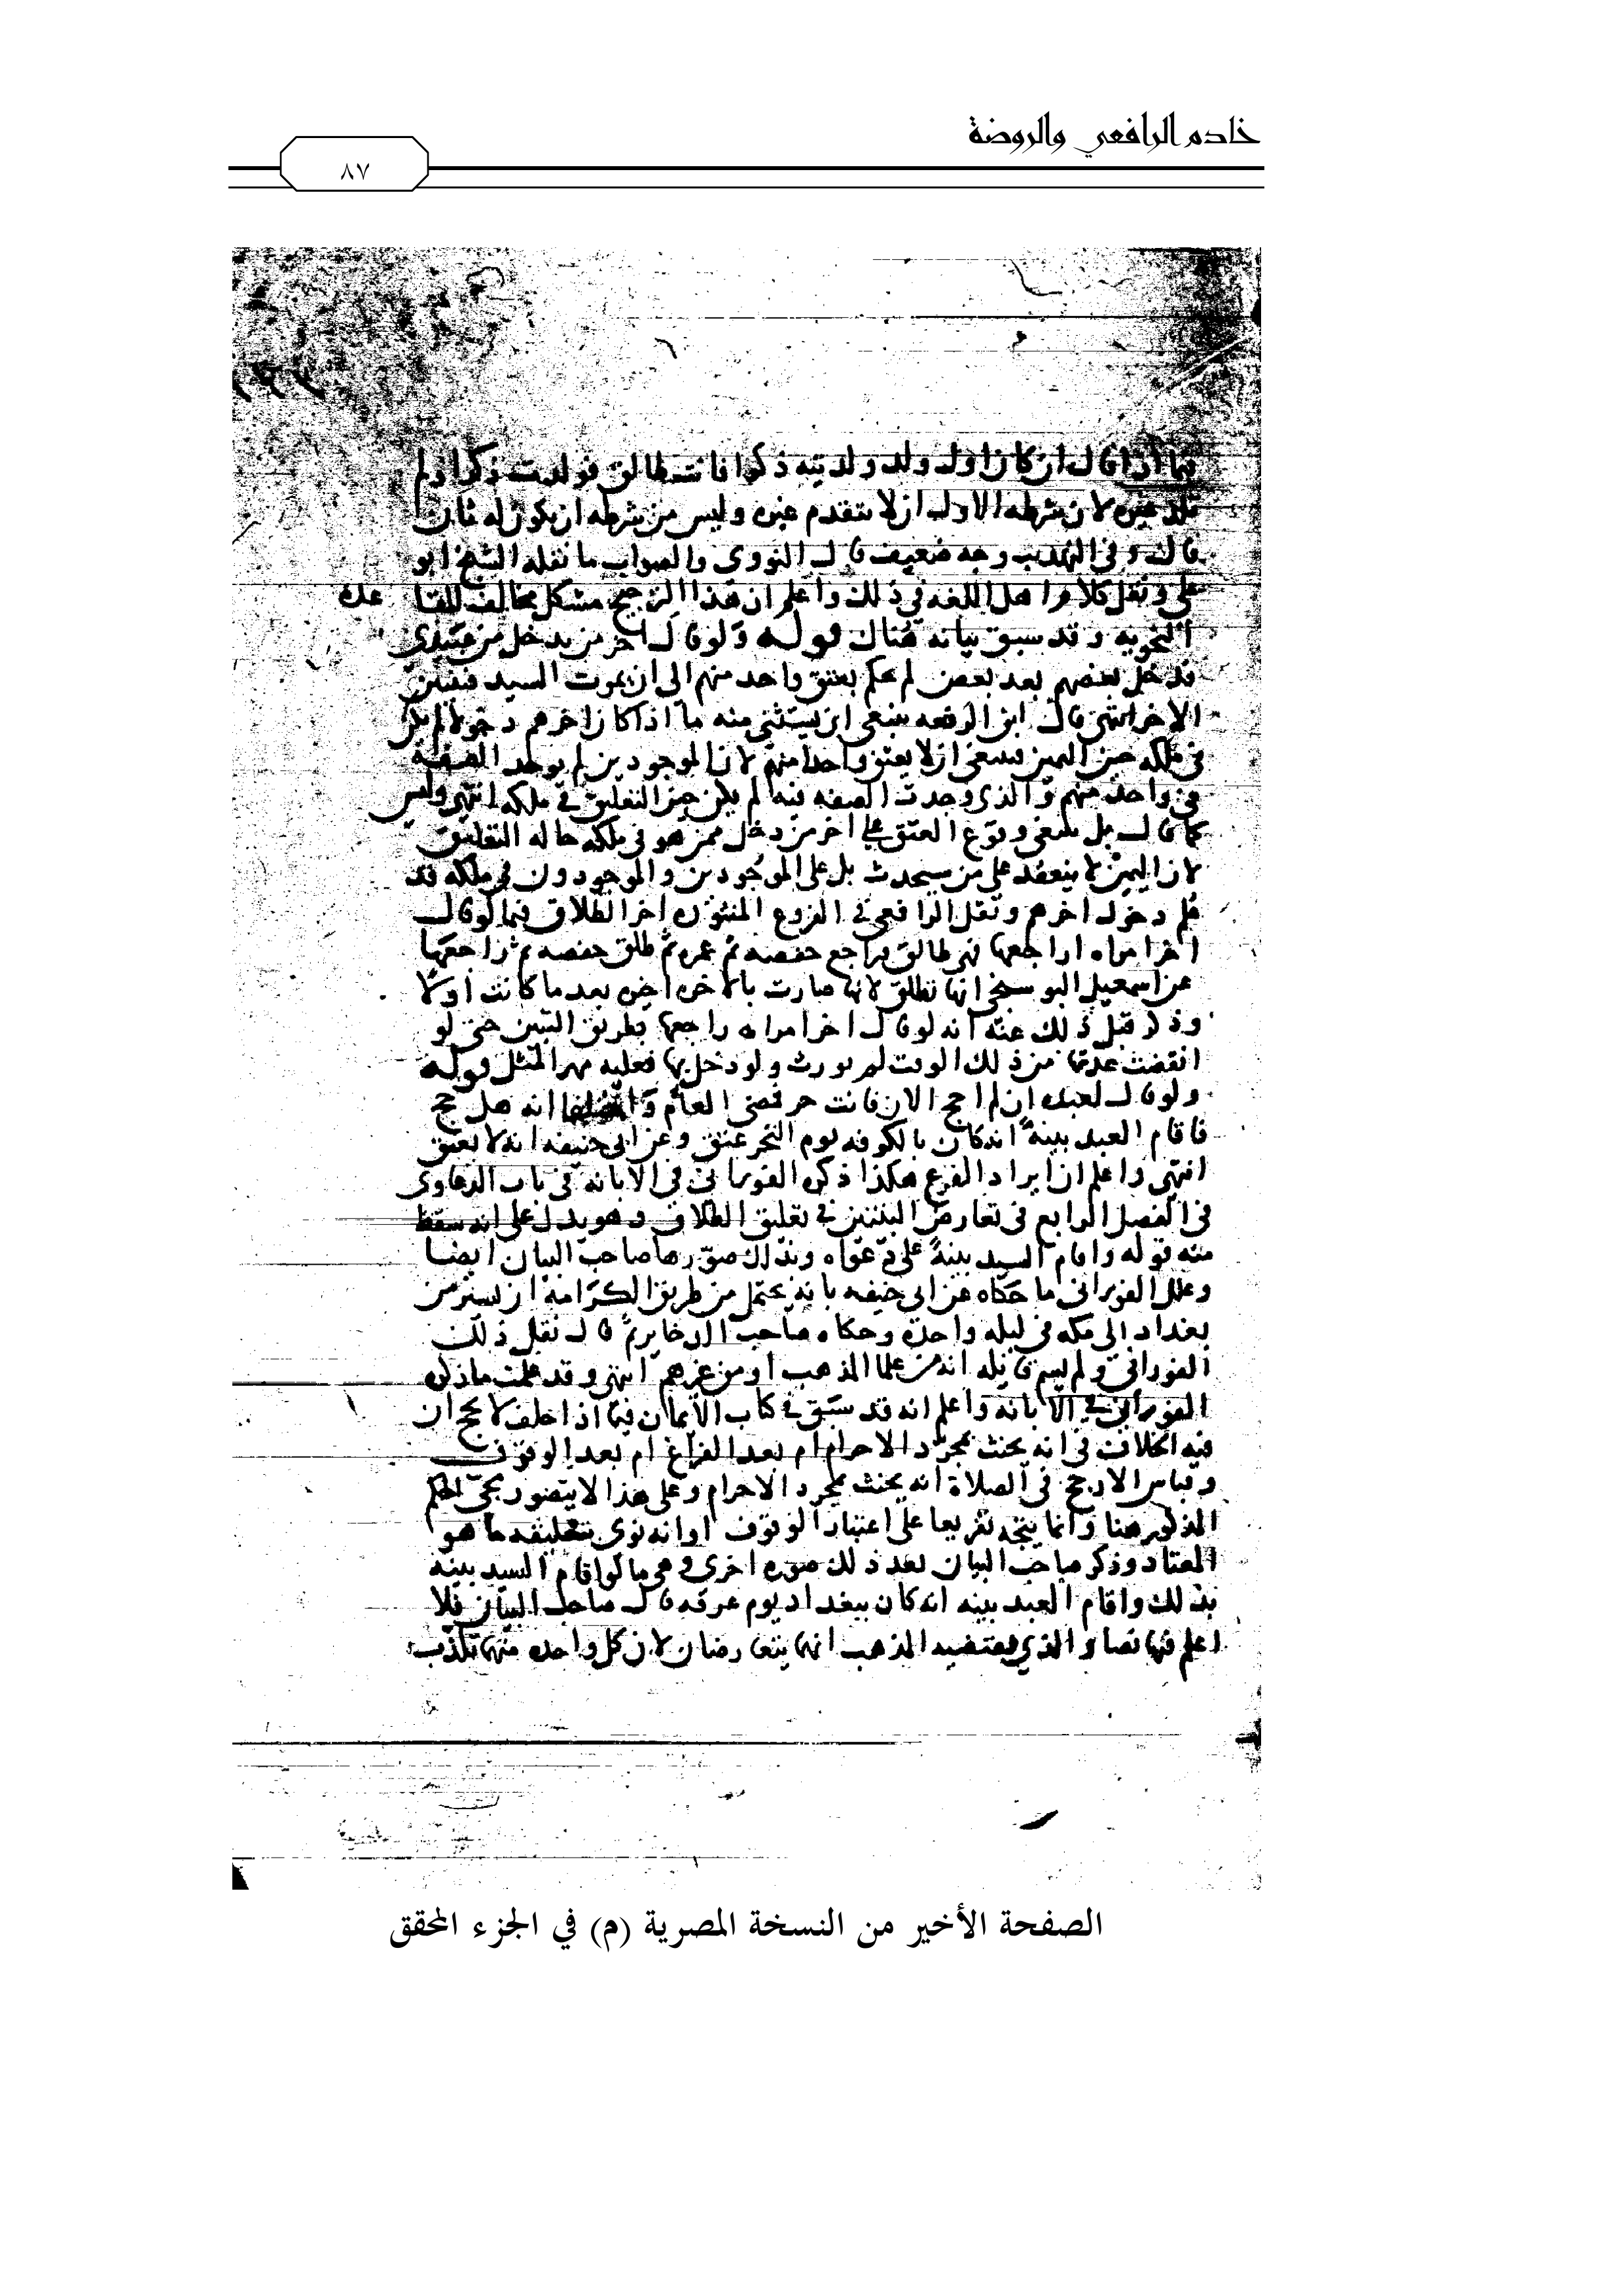 خادم الرافعي والروضة
٨٧
فيما اذا قال ان كان اول ولد ولدتيه ذكرا فانت طالق فولدت ذكرا ولم
تلد غيره لان شرطه الاول ان لا يتقدم غيره وليس من شرطه ان يكون له ثان
قال وفي التهذيب وجه ضعيف قال النووي والصواب ما نقله الشيخ ابو
علي ونقل كلام اهل اللغه في ذلك واعلم ان هذا الترجيح مشكل مخالف للقا عك
النحويه وقد سبق بيانه هناك قوله ولو قال اخر من يدخل من عبيدي
فدخل بعضهم بعد بعض لم يحكم بعتق واحد منهم الى ان يموت السيد فيتبين
الاخر انتهى قال ابن الرفعه ينبغي ان يستثنى منه ما اذا كان اخرهم دخولا لم يكن
في ملكه حين اليمين فينبغي ان لا يعتق واحدا منهم لان الموجودين لم يوجد الصفة
في واحد منهم والذي وجدت الصفه فيه لم يكن حين التعليق في ملكه انتهى وليس
كما قال بل ينبغي وقوع العتق على اخر من دخل ممن هو في ملكه حاله التعليق
لان اليمين لا ينعقد على من سيحدث بل على الموجودين والموجودون في ملكه قد
علم دخول اخرهم ونقل الرافعي في الفروع المنثوره اخر الطلاق فيما لو قال
اخر امراه اراجعها فهي طالق فراجع حفصه ثم عمره ثم طلق حفصه ثم راجعها
عن اسمعيل البوسنجي انها تطلق لانها صارت بالاخره اخره بعد ما كانت اولا
وذكر قبل ذلك عنه انه لو قال اخر امراه راجعها بطريق التبين حتى لو
انقضت عدتها من ذلك الوقت لم يورث ولو دخل بها فعليه مهر المثل قوله
ولو قال لعبده ان لم احج الان فانت حر فمضى العام واختلفا انه هل حج
فاقام العبد بينة انه كان بالكوفه يوم النحر عتق وعن ابي حنيفه انه لا يعتق
انتهى واعلم ان ايراد الفرع هكذا ذكره الفوراني في الابانه في باب الدعاوى
في الفصل الرابع في تعارض البينتين في تعليق الطلاق وهو يدل على انه سقط
منه قوله واقام السيد بينة على دعواه وبذلك صورها صاحب البيان ايضا
وعلل الفوراني ما حكاه عن ابي حنيفه بانه يحتمل من طريق الكرامة ان يسير من
بغداد الى مكه في ليله واحدة وحكاه صاحب الذخاير ثم قال نقل ذلك
الفوراني ولم يسم قايله انه من علما المذهب او من غيرهم انتهى وقد علمت ما ذكره
الفوراني في الابانه واعلم انه قد سبق في كتاب الايمان فيما اذا حلف لا يحج ان
فيه الخلاف في انه يحنث بمجرد الاحرام ام بعد الفراغ ام بعد الوقوف
وقياس الارجح في الصلاة انه يحنث بمجرد الاحرام وعلى هذا لا يتصور مجي الحكم
المذكور هنا وانما يتجه تفريعا على اعتبار الوقوف او انه نوى بتعليقه ما هو
المعتاد وذكر صاحب البيان بعد ذلك صوره اخرى وهي ما لو اقام السيد بينه
بذلك واقام العبد بينه انه كان ببغداد يوم عرفه قال صاحب البيان فلا
اعلم فيها نصا والذي يقتضيه المذهب انهما يتعارضان لان كل واحده منهما تكذب
الصفحة الأخير من النسخة المصرية (م) في الجزء المحقق